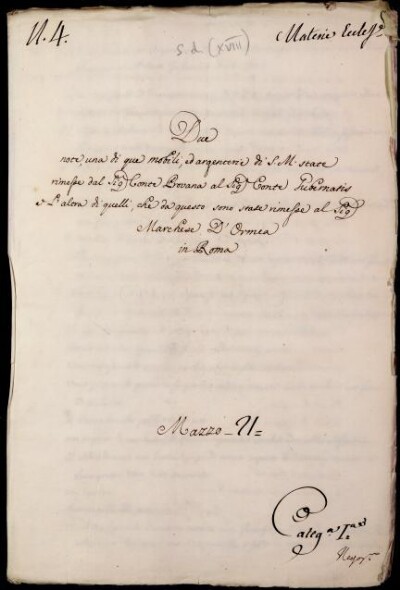 N. 4.
s. d. (XVIII)
Materie Eccle.
Due
note, una di que mobili, ed argenterie di S. M. state
rimesse dal Sig. Conte Provana al Sig. Conte Gubernatis
e l'altra di quelli, che da questo sono state rimesse al Sig.
Marchese D'Ormea
in Roma
Mazzo
Categ.a I.